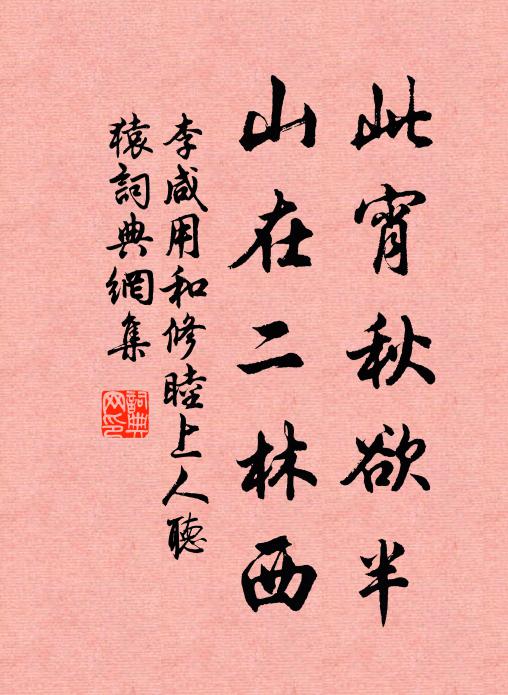 此宵秋欲半
山在二林西
李咸用和修睦上人聽
猿詞典網集
詞典网印